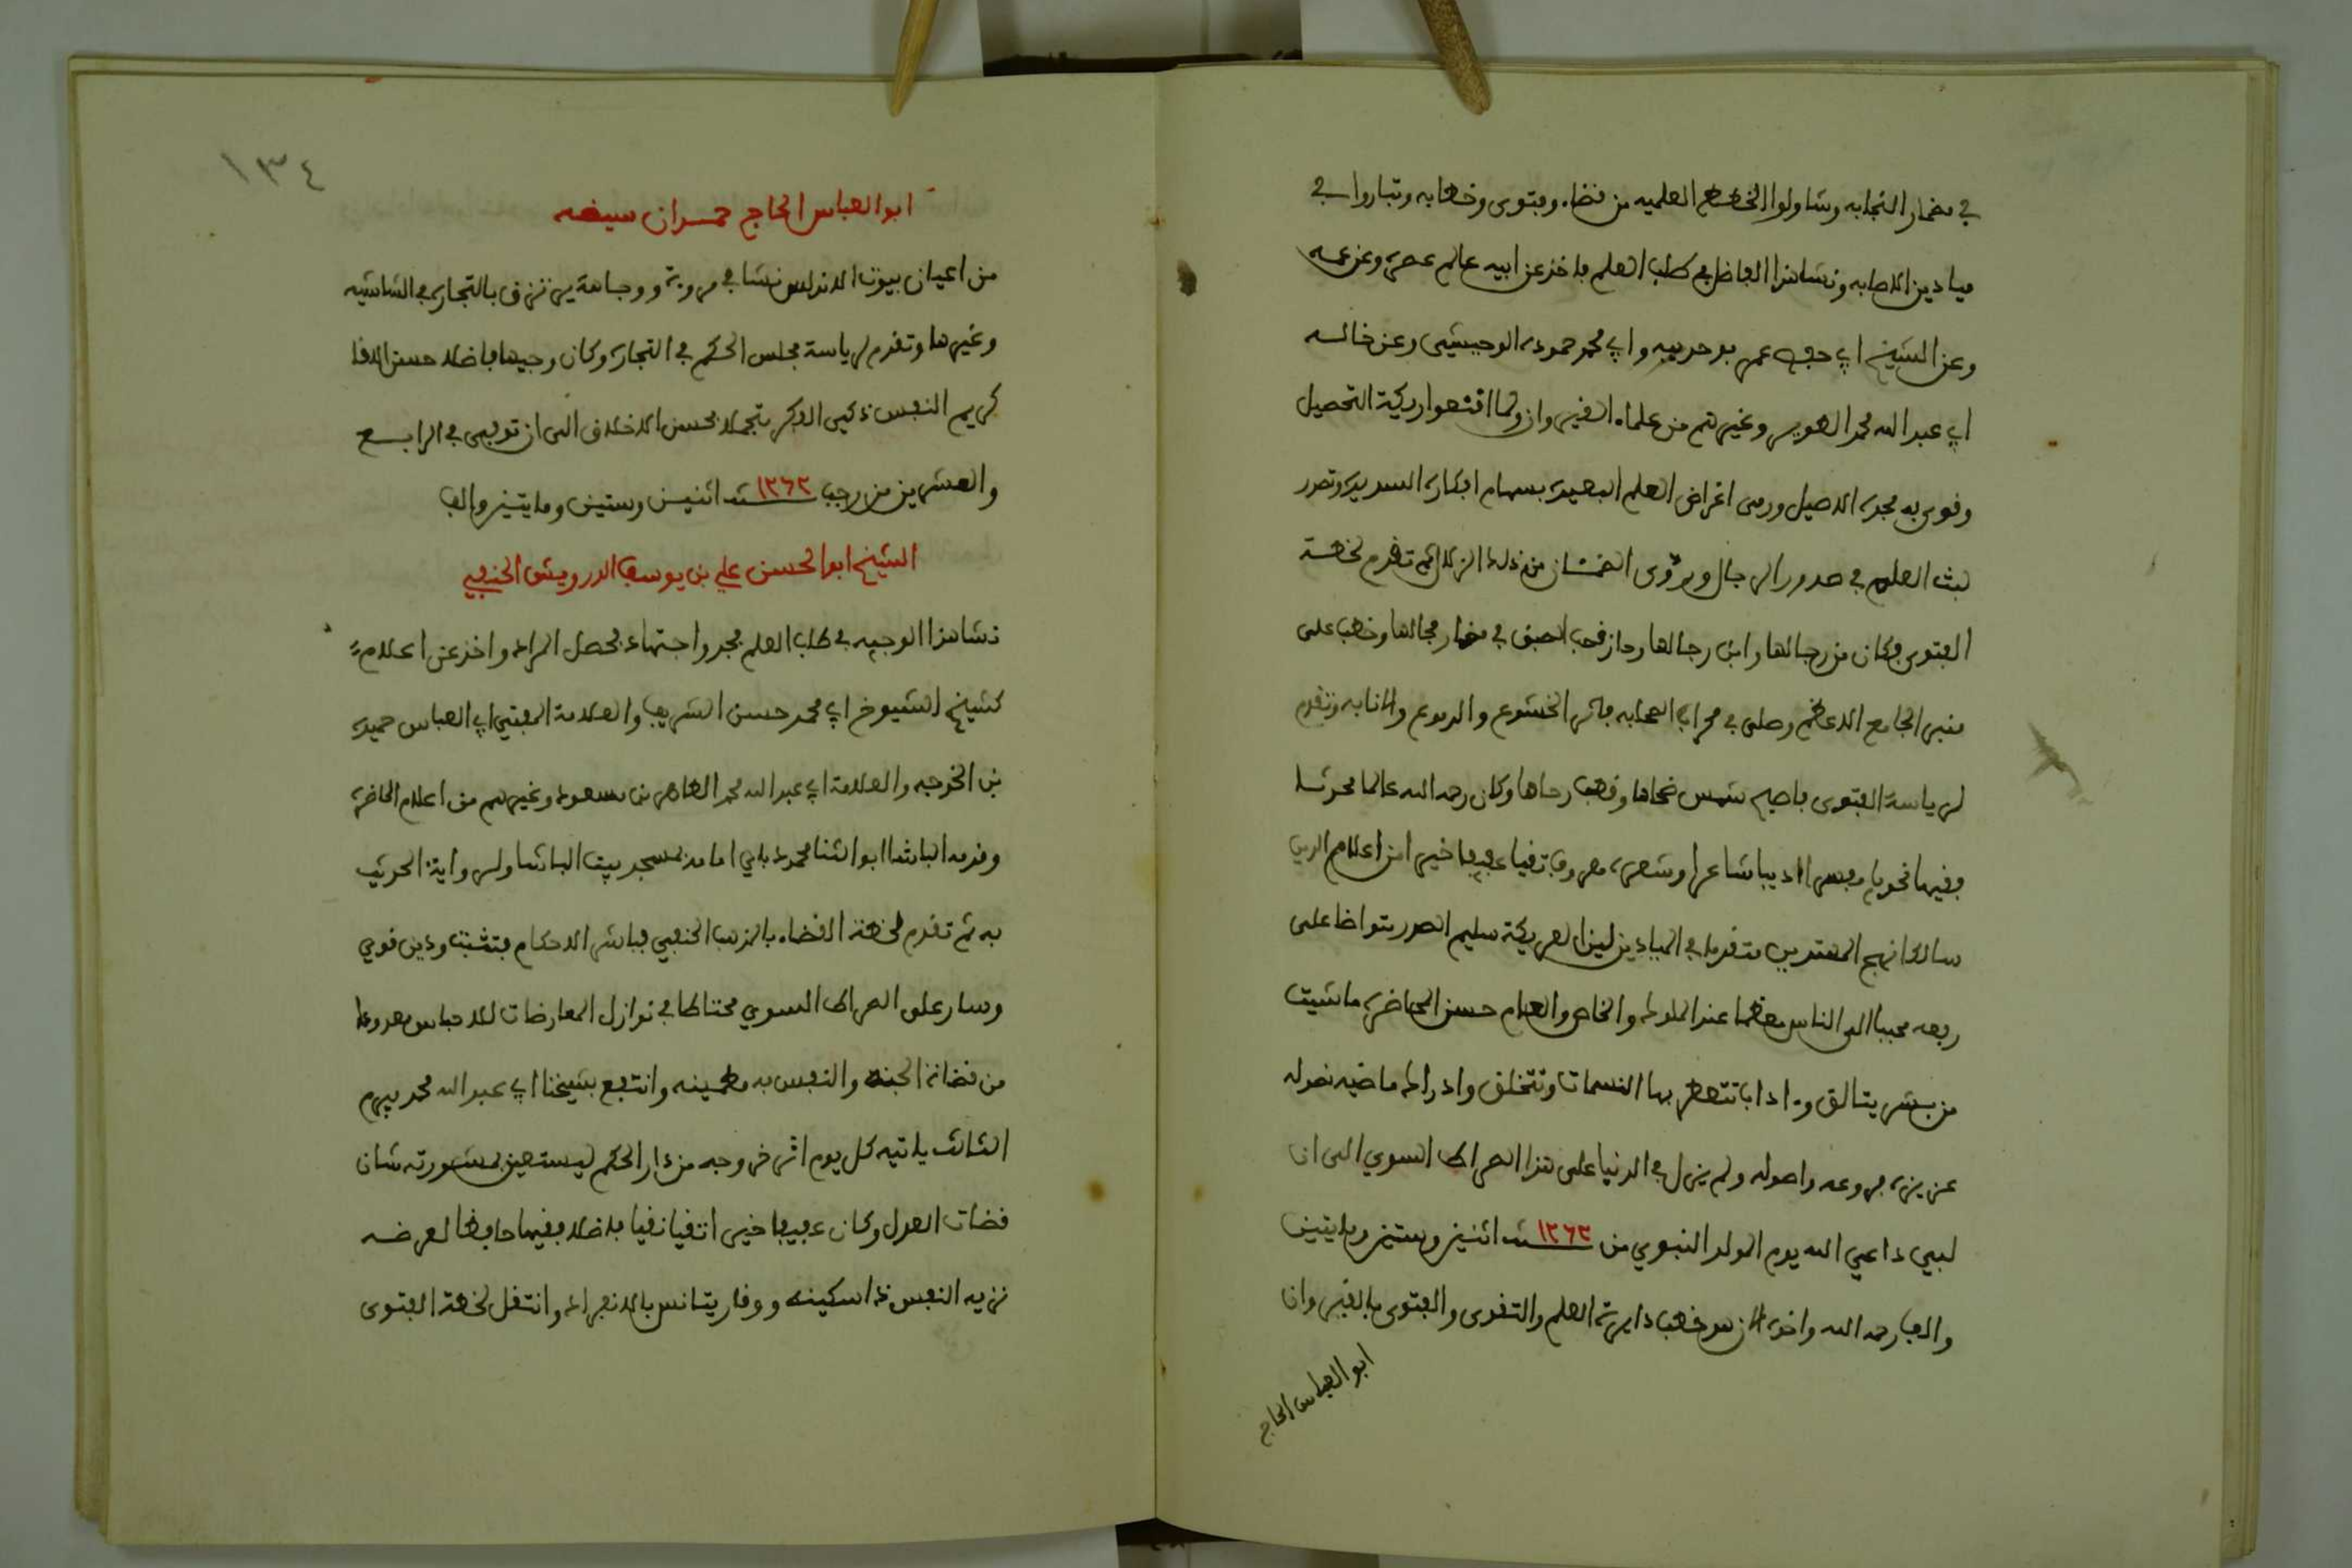 في مضمار النجابه وتناولوا الخطط العلميه من قضاء وفتوى وخطابه وتباروا في
ميادين الاصابه ونشا هذا الفاضل في طلب العلم فاخذ عن ابيه عالم عصره وعن عمه
وعن الشيخ ابي حفص عمر بو حديبه وابي محمد حموده الوحيشي وعن خاله
ابي عبد الله محمد الطوير وغيرهم من علماء القيروان ولما اقتعد اريكة التحصيل
وقوي به مجده الاصيل ورمى اغراض العلم البعيده بسهام افكاره السديده وتصدر
لبث العلم في صدور الرجال ويروى الضمئان من ذلك الزلال ثم تقدم لخطة
الفتوى فكان من رجالها وابن رجالها وحاز قصب السبق في مضمار مجالها وخطب على
منبر الجامع الاعظم وصلى في محراب الصحابه فاثر الخشوع والدموع والانابه وتقدم
لرياسة الفتوى فاصبح شمس ضحاها وقطب رحاها وكان رحمه الله عالما محدثا
فقيها نحويا مفسرا اديبا شاعرا وشعره معروف تقيا عفيفا خيرا من اعلام الدين
سالكا نهج المهتدين متقدما في الميادين لين العريكة سليم الصدر متواضعا على
رفعه محببا الى الناس معظما عند الملوك والخاص والعام حسن المحاضره ما شيت
من بشر يتالق وءادابا تتعطر بها النسمات وتتخلق وادراك ماضيه نصوله
عزيزه فروعه واصوله ولم يزل في الدنيا على هذا الصراط السوي الى ان
لبى داعي الله يوم المولد النبوي من سنة ١٢٦٢ اثنين وستين ومايتين
والف رحمه الله واخوه الان هو خطب دايرة العلم والتقوى والفتوى بالقيروان
ابو العباس الحاج
١٣٤
ابو العباس الحاج حمدان سيضه
من اعيان بيوت الاندلس نشا في مروءة ووجاهة يرتزق بالتجاره في الشاشيه
وغيرها وتقدم لرياسة مجلس الحكم في التجاره وكان وجيها فاضلا حسن اللقا
كريم النفس ذكي الفكر متجملا بحسن الاخلاق الى ان توفي في الرابع
والعشرين من رجب سنة ١٢٦٢ اثنين وستين ومايتين والف
الشيخ ابو الحسن علي بن يوسف الدرويش الحنفي
نشا هذا الوجيه في طلب العلم بجد واجتهاد فحصل المراد واخذ عن اعلامه
كشيخ الشيوخ ابي محمد حسن الشريف والعلامة المفتي ابي العباس حميده
بن الخوجه والعلامة ابي عبد الله محمد الطاهر بن مسعود وغيرهم من اعلام الحاضره
وقدمه الباشا ابو الثنا محمود باي اماما بمسجد بيت الباشا ولرواية الحديث
به ثم تقدم لخطة القضاء بالمذهب الحنفي فباشر الاحكام بتثبت ودين قوي
وسار على الصراط السوي محتاطا في نوازل المعارضات للاحباس معدودا
من قضاة الجنة والنفس به مطمينه وانتفع بشيخنا ابي عبد الله محمد بيرم
الثالث ياتيه كل يوم اثر خروجه من دار الحكم ليستعين بمشورته شان
قضات العدل وكان عفيفا خيرا تقيا نقيا فاضلا فقيها حافظا لعرضه
نزيه النفس ذا سكينه ووقار يتانس بالانفراد وانتقل لخطة الفتوى